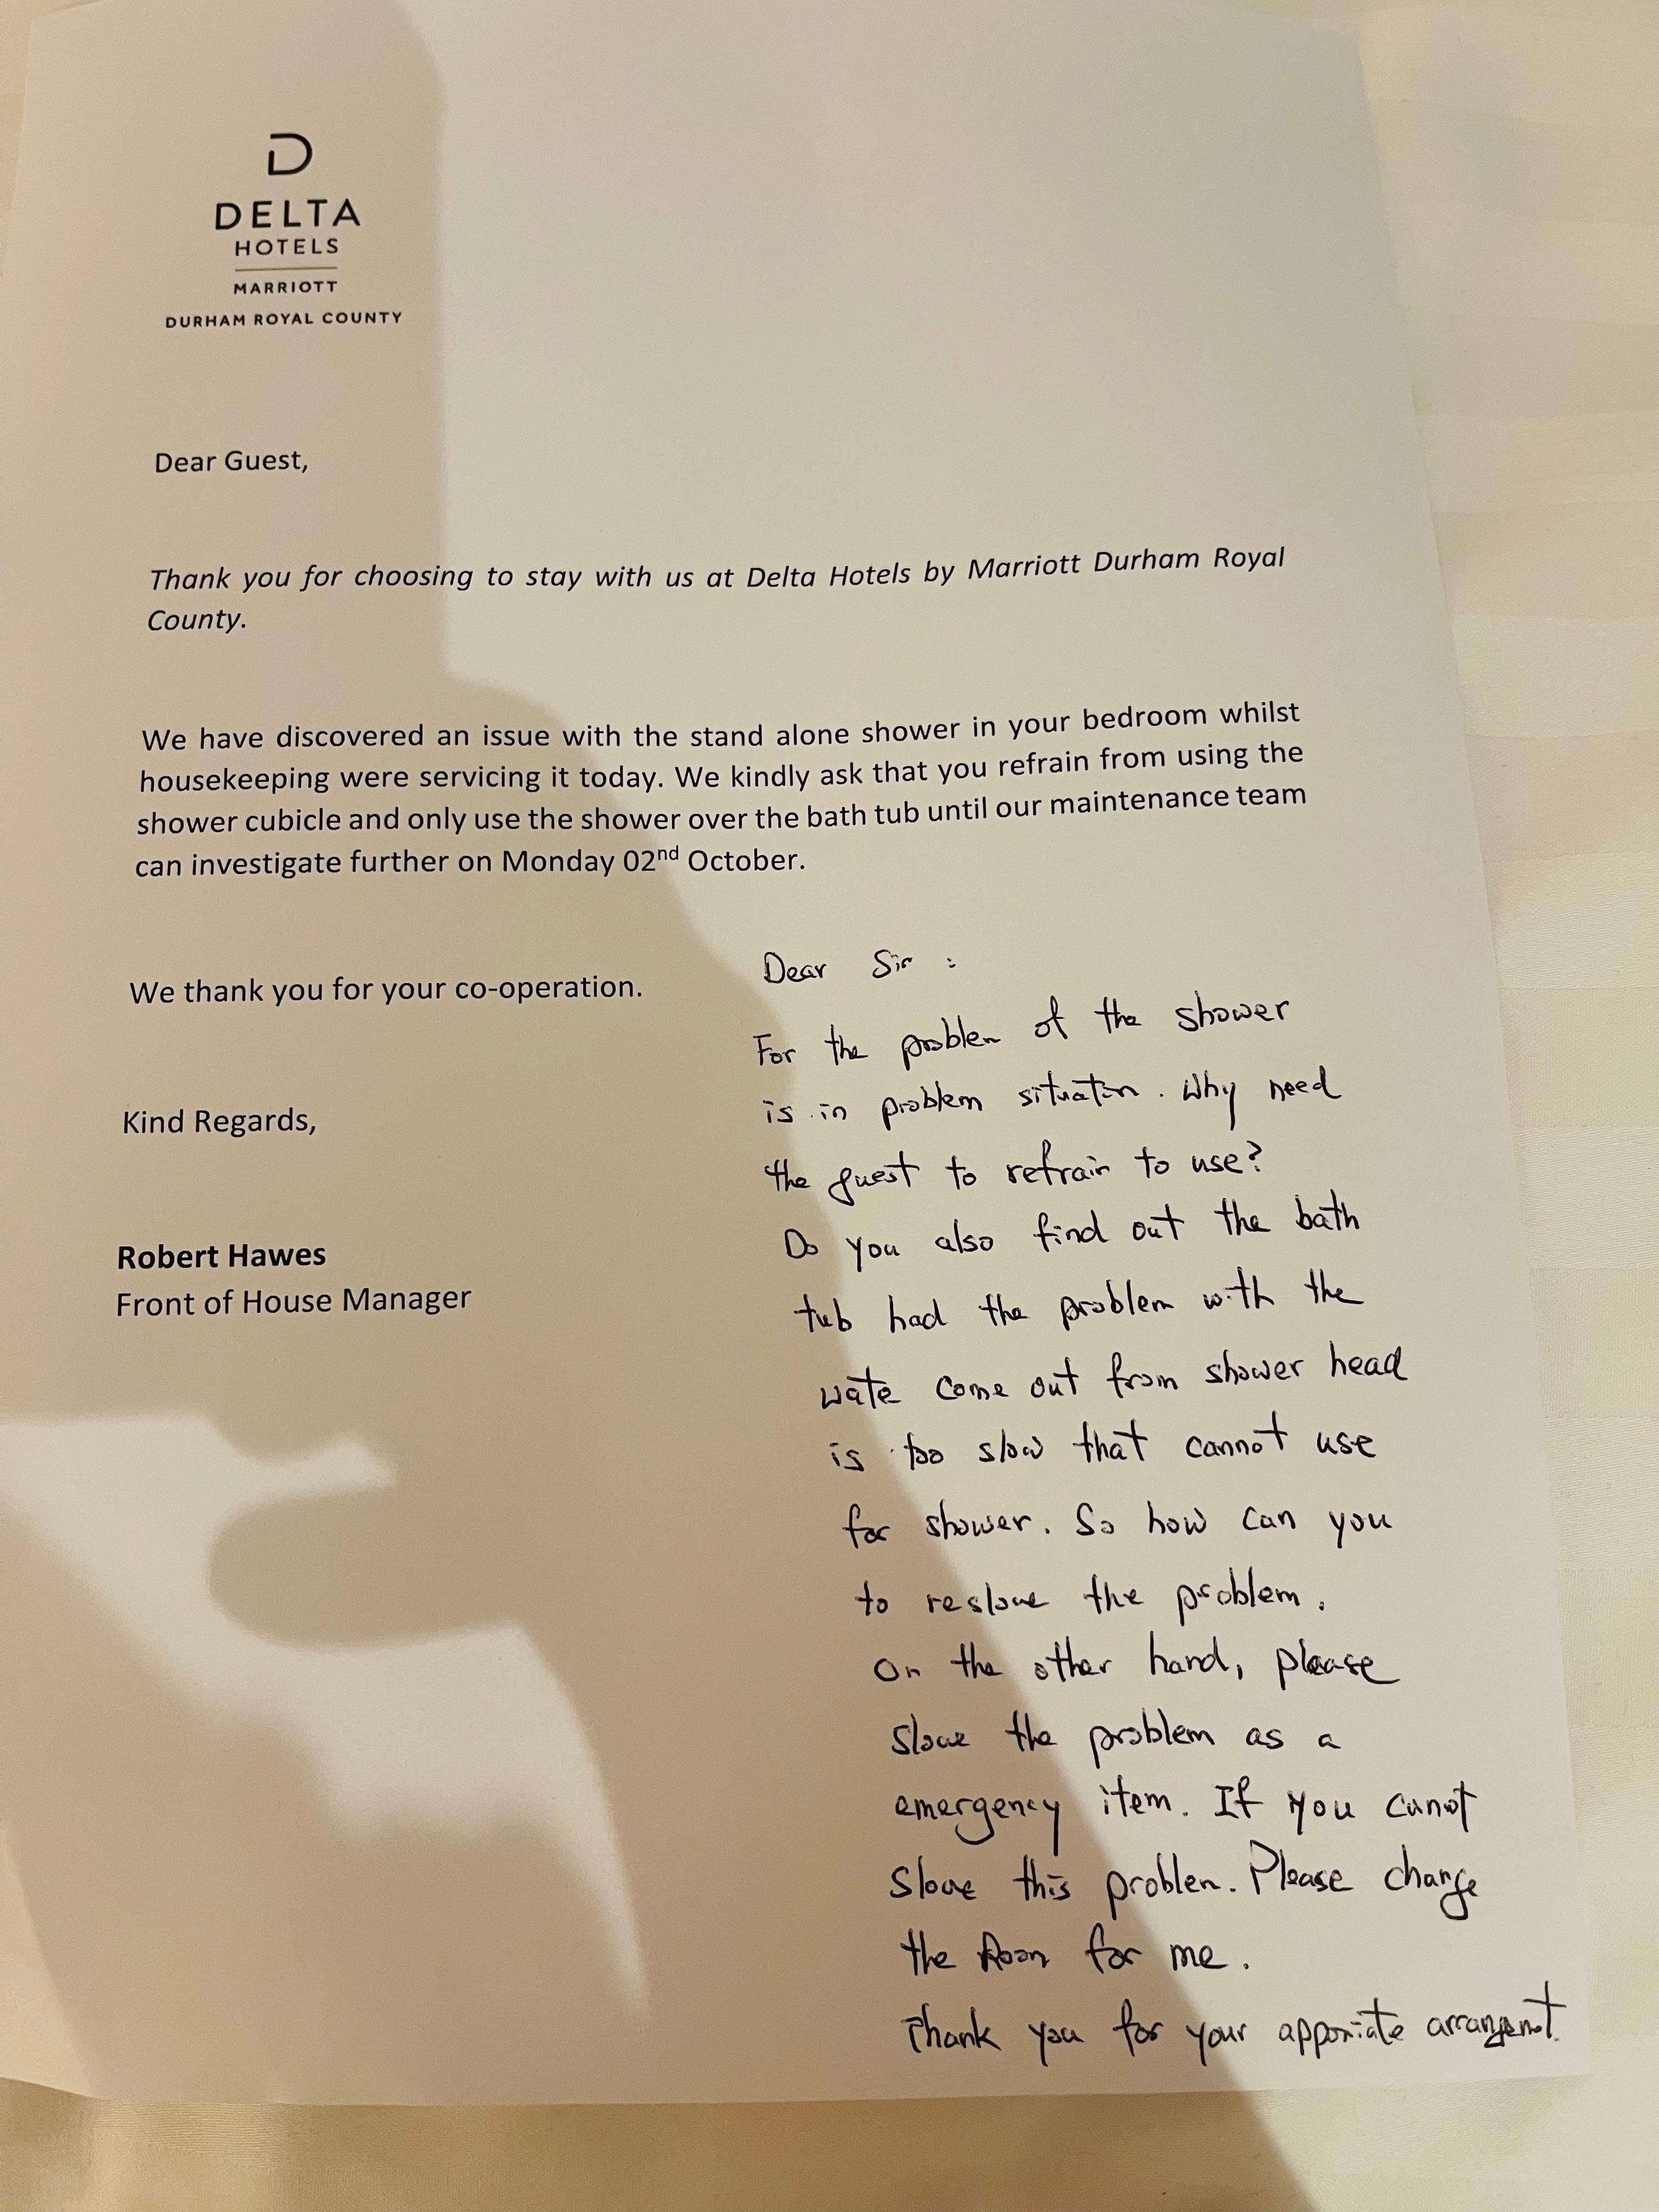 D
DELTA
HOTELS
MARRIOTT
DURHAM ROYAL COUNTY
Dear Guest,
Thank you for choosing to stay with us at Delta Hotels by Marriott Durham Royal
County.
We have discovered an issue with the stand alone shower in your bedroom whilst
housekeeping were servicing it today. We kindly ask that you refrain from using the
shower cubicle and only use the shower over the bath tub until our maintenance team
can investigate further on Monday 02nd October.
We thank you for your co-operation.
Kind Regards,
Robert Hawes
Front of House Manager
Dear Sir :
For the problem of the shower
is in problem situation. Why need
the guest to refrain to use?
Do you also find out the bath
tub had the problem with the
wate come out from shower head
is too slow that cannot use
for shower. So how can you
to reslove the problem.
On the other hand, please
slove the problem as a
emergency item. If you cannot
slove this problem. Please change
the Room for me.
Thank you for your apporiate arrangemet.